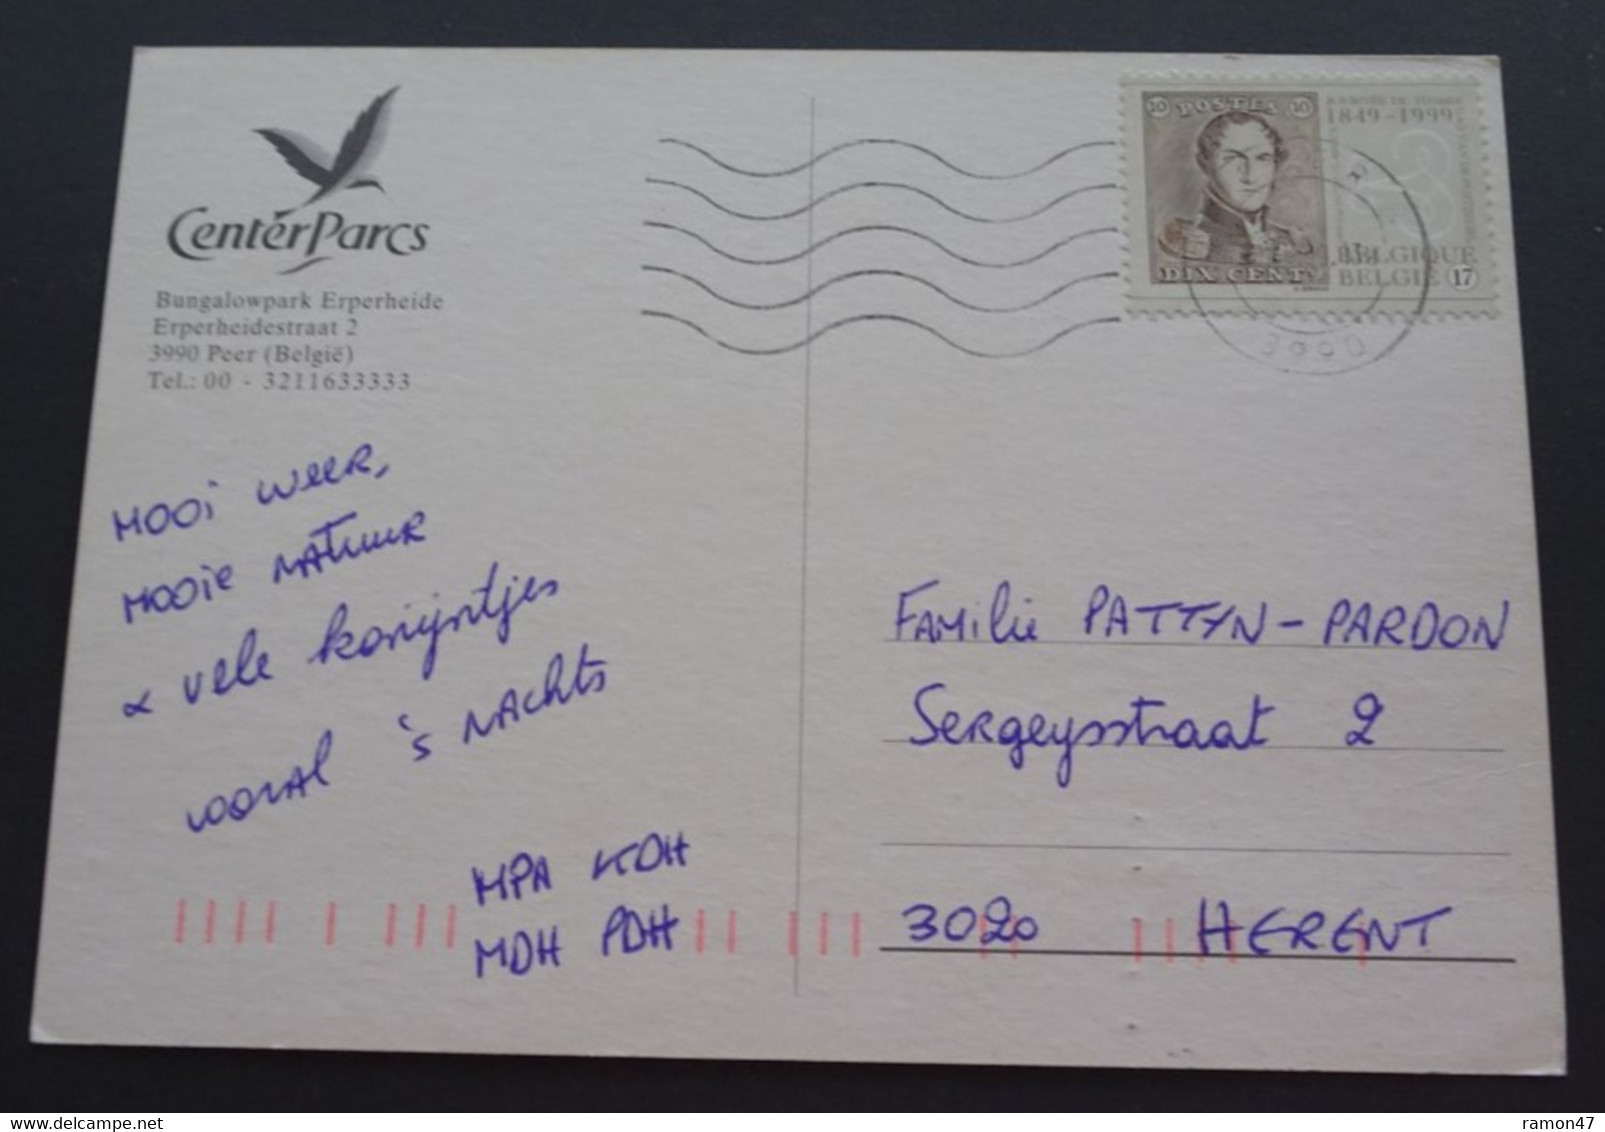 Center Parcs
Bungalowpark Erperheide
Erperheidestraat 2
3990 Peer (België)
Tel.: 00 - 3211633333
MOOI WEER,
MOOIE NATUUR
& vele konijntjes
vooral 's NACHTS
MPA KDH
MDH PDH
10 POSTES 10
DIX CENTS
1849-1999
BELGIQUE
BELGIË 17
3990
FAMILIE PATTYN-PARDON
Sergeysstraat 2
3020 HERENT
ramon47